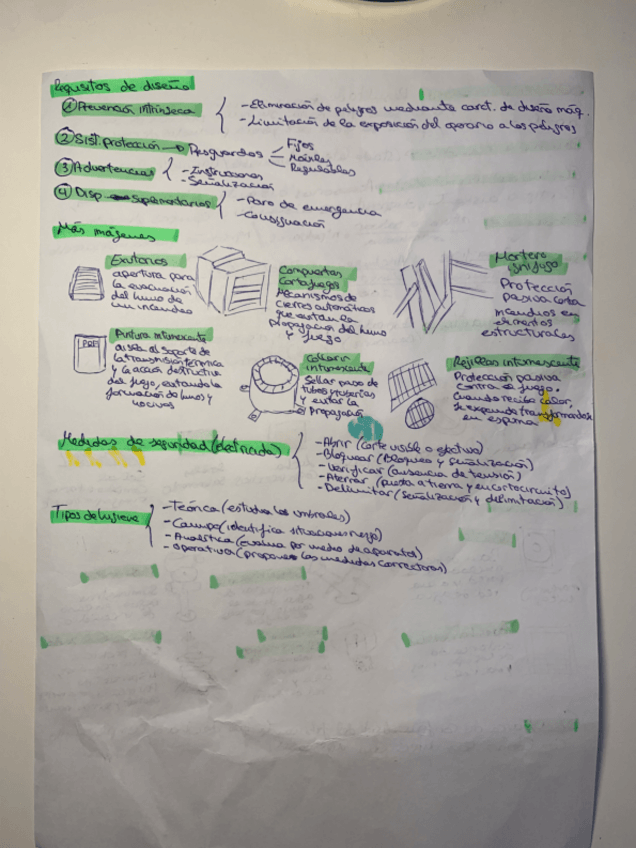 Requisitos de diseño
① Prevención intrínseca
- Eliminación de peligros mediante caract. de diseño máq.
- Limitación de la exposición del operario a los peligros
② Sist. Protección → Resguardos
Fijos
Móviles
Regulables
③ Advertencias
- Instrucciones
- Señalización
④ Disp suplementarios
- Paro de emergencia
- Consignación
Más imágenes
Exutorios
apertura para
la evacuación
del humo de
un incendio
Compuertas
Cortafuegos
Mecanismos de
cierres automáticos
que evitan la
propagación del humo
y fuego
Mortero
ignífugo
Protección
pasiva contra
incendios en
elementos
estructurales
Pintura intumescente
PRF
aisla al soporte de
la transmisión térmica
y la acción destructiva
del fuego, evitando la
formación de humos y
nocivos
Collarín
intumescente
Sellar paso de
tubos y tuberías
y evitar la
Propagación
Rejillas intumescente
Protección pasiva
contra el fuego.
Cuando recibe calor,
se expande transformandose
en espuma
Medidas de seguridad (electricidad)
- Abrir (corte visible o efectivo)
- Bloquear (Bloqueo y señalización)
- Verificar (ausencia de tensión)
- Aterrar (puesta a tierra y en cortocircuito)
- Delimitar (señalización y delimitación)
Tipos de higiene
- Teórica (estudia los umbrales)
- Campo (identifica situaciones riesgo)
- Analítica (evalua por medio de aparatos)
- Operativa (propone las medidas correctoras)